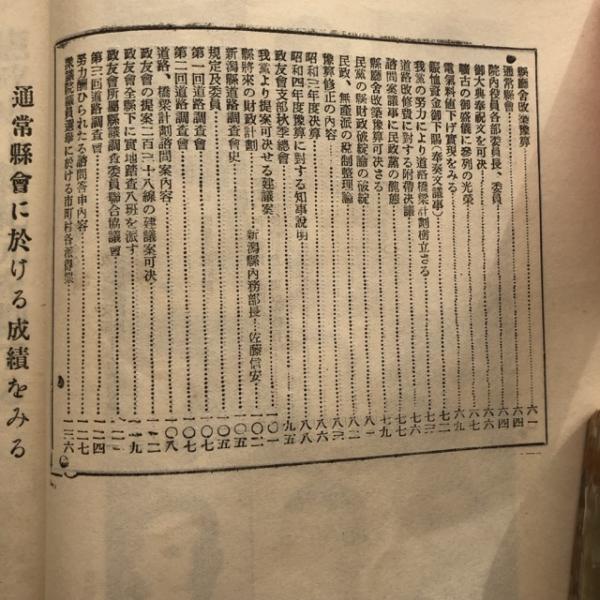 縣廳舍改築豫算……六一
通常縣會……六四
院内役員各部委員長、委員……六四
御大典奉祝文を可決……六六
曠古の御盛儀に參列の光榮……六七
電氣料値下げ實現をみる……六九
賑恤資金御下賜(奉答文議事)……七二
我黨の努力により道路橋梁計劃樹立さる……七三
道路改修費に對する附帶決議……七七
諮問案議事に民政黨の醜態……七九
縣廳舍改築豫算可決さる……八一
民黨の縣財政破綻論の破綻……八二
民政、無產派の稅制整理論……八三
豫算修正の內容……八六
昭和二年度決算……八八
昭和四年度豫算に對する知事說明……八八
政友會支部秋季總會……九五
我黨より提案可決せる建議案……一〇一
縣將來の財政計劃……新潟縣內務部長…佐藤信安…一〇二
新潟縣道路調査會史……一〇五
規定及委員……一〇五
第一回道路調査會……一〇七
第二回道路調査會……一〇八
道路、橋梁計劃諮問案內容……一一二
政友會の提案二百三十八線の建議案可決……一一九
政友會全縣下に實地踏査八班を派す……一二一
政友會所屬縣議調査委員聯合協議會……一二一
第三回道路調査會……一二四
努力酬ひられたる諮問答申內容……一二七
衆議院議員選擧に於ける市町村各派得票……一三六
通常縣會に於ける成績をみる